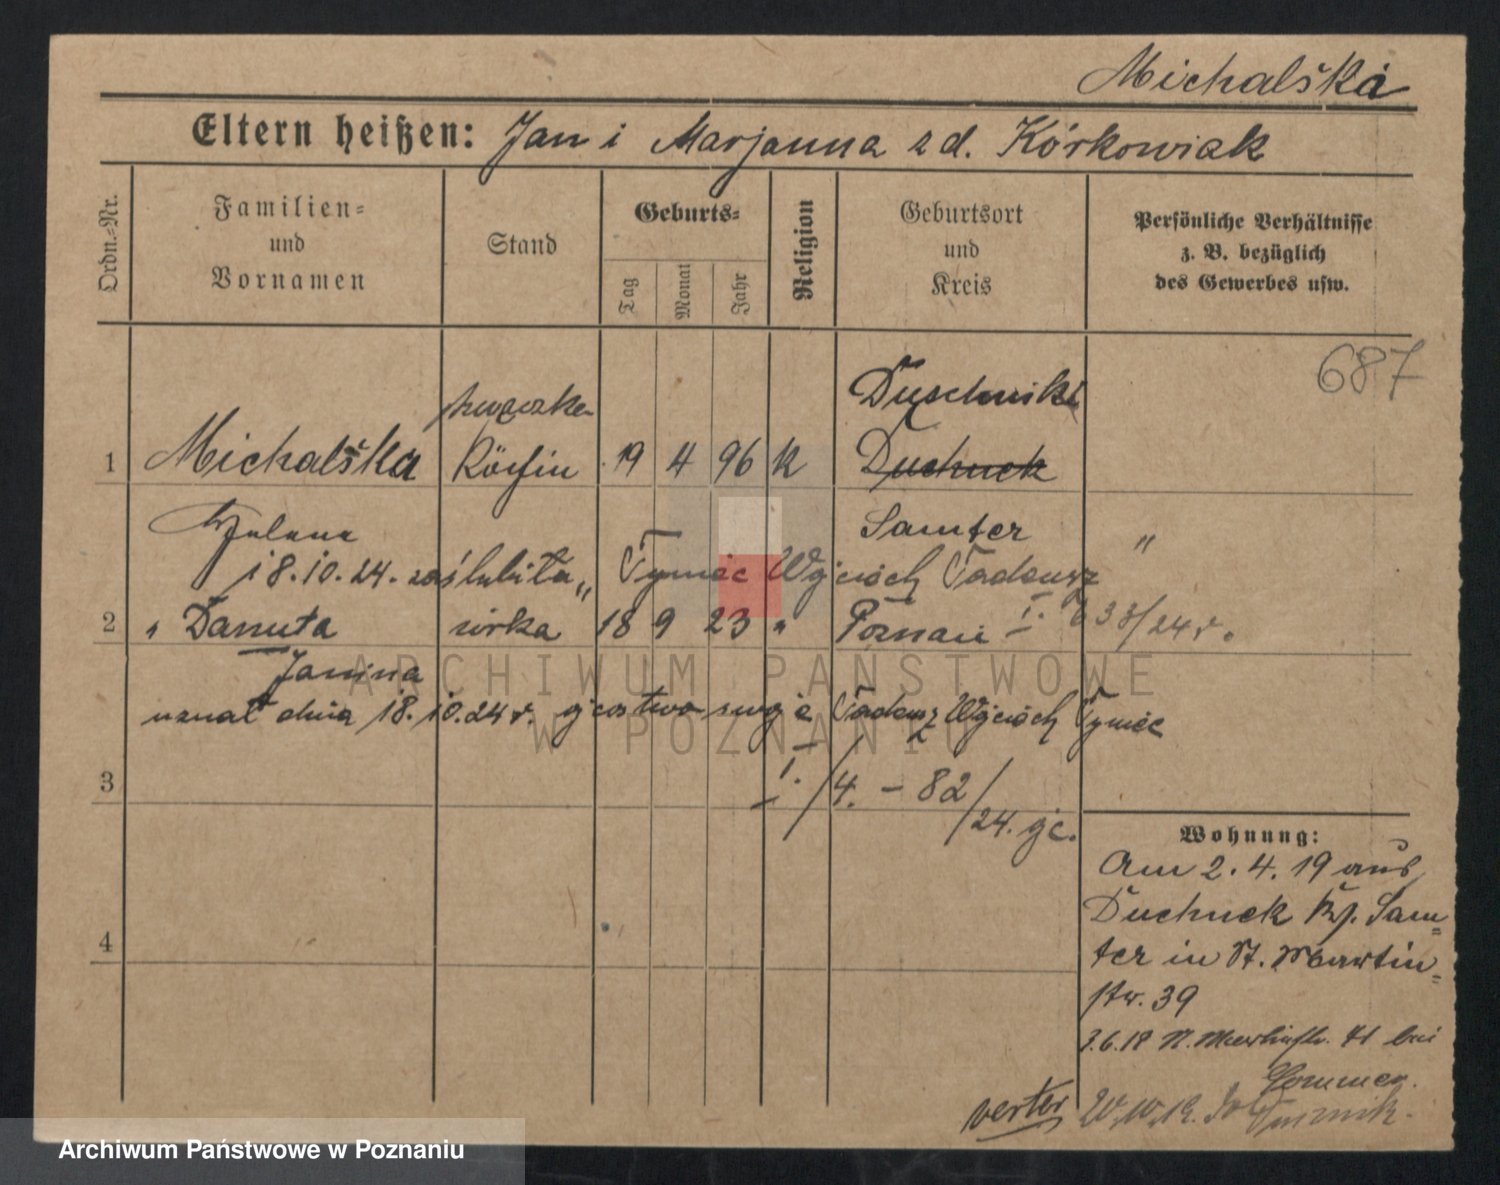 Michalška
Eltern heißen: Jan i Marjanna z d. Kórkowiak
Ordn.-Nr.
Familien-
und
Vornamen
Stand
Geburts-
Tag
Monat
Jahr
Religion
Geburtsort
und
Kreis
Persönliche Verhältnisse
z. B. bezüglich
des Gewerbes usw.
687
Duschniki
1 Michalška Köchin 19 4 96 K Duchnek
Samter "
18.10.24. zaślubiła " Tymiec Wojciech Tadeusz
2 " Danuta córka 18 9 23 " Poznań I. 633/24 r.
Janina
uznał dnia 18.10.24 r. ojcostwo swoje Tadeusz Wojciech Tymiec
3 I./4. - 82/24. gc.
4
Wohnung:
Am 2. 4. 19 aus
Duchnek Kr. Sam-
ter in St. Martin-
str. 39
3.6.18 St. Martinstr. 41 bei
verter
ARCHIWUM PAŃSTWOWE
W POZNANIU
Archiwum Państwowe w Poznaniu